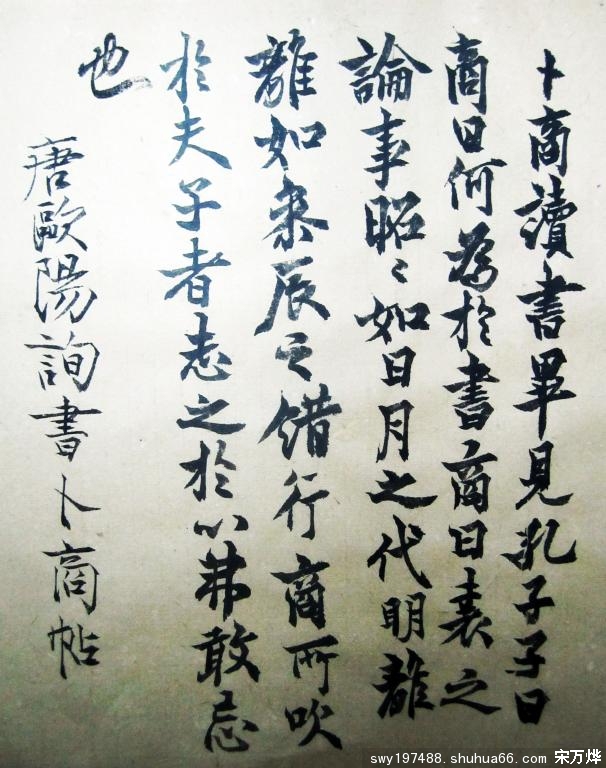 卜商讀書畢見孔子子曰
商曰何為於書商曰之
論事昭〻如日月之代明離
離如參辰之錯行商所吹
於夫子者志之於心弗敢忘
也
唐歐陽詢書卜商帖
swy197488.shuhua66.com 宋万烨